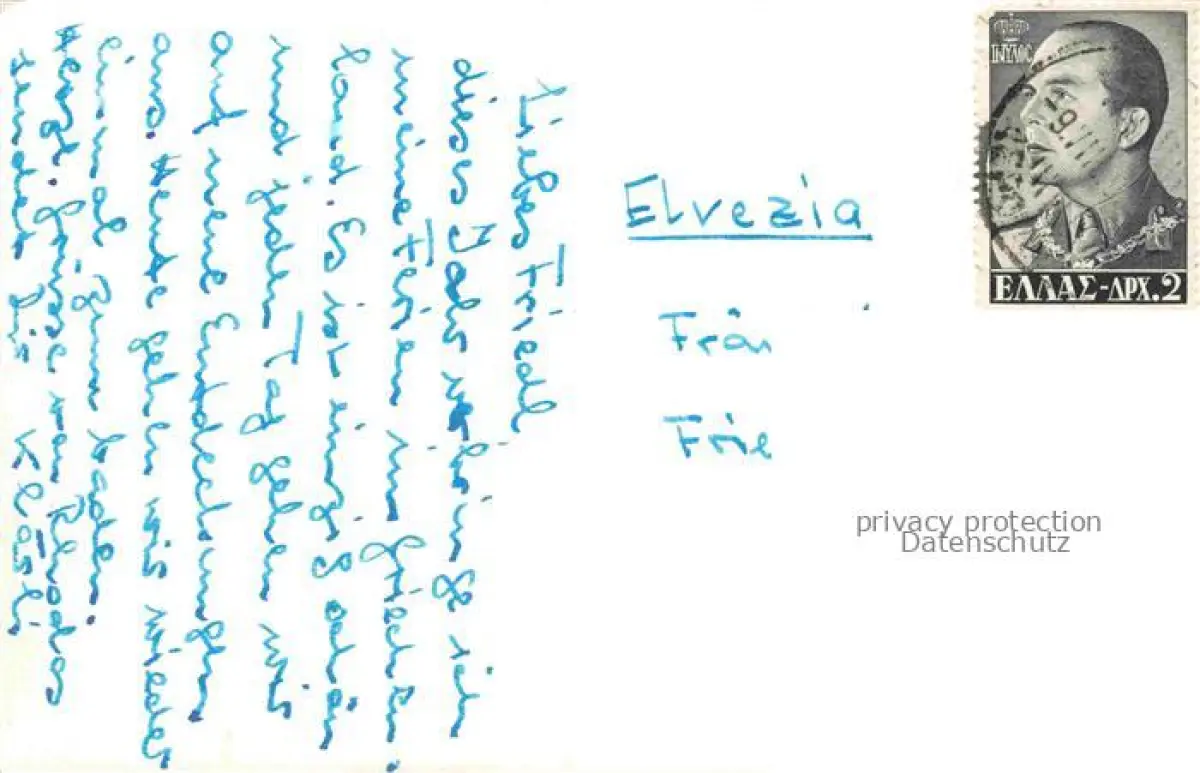 Liebes Friedl
dieses Jahr verbringe ich
meine Ferien in Griechen-
land. Es ist einfach schön
und jeden Tag gehen wir
auf neue Entdeckungen
aus. Heute gehen wir wieder
einmal zum baden.
Herzl. Grüsse von Rhodos
sendet Dir Kläsli
Elvezia
Frau
Frie
ΠΑΥΛΟΣ
19
ΕΛΛΑΣ-ΔΡΧ.2
privacy protection
Datenschutz